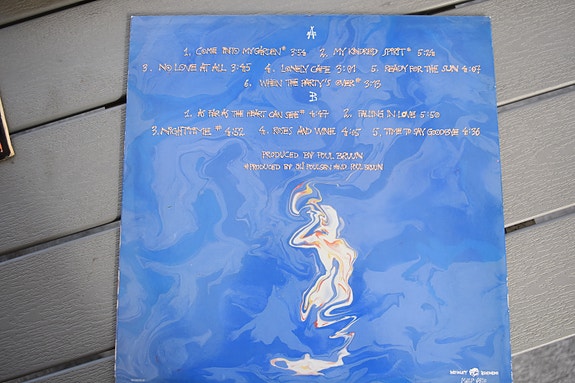 A
1. COME INTO MY GARDEN* 3:54 2. MY KINDRED SPIRIT* 5:28
3. NO LOVE AT ALL 3:45 4. LONELY CAFE 3:01 5. READY FOR THE SUN 4:07
6. WHEN THE PARTY'S OVER* 3:13
B
1. AS FAR AS THE HEART CAN SEE* 4:47 2. FALLING IN LOVE 5:50
3. NIGHTTIME * 4:52 4. ROSES AND WINE 4:07 5. TIME TO SAY GOODBYE 4:36
PRODUCED BY POUL BRUUN
*PRODUCED BY POULSEN AND POUL BRUUN
MEDLEY RECORDS